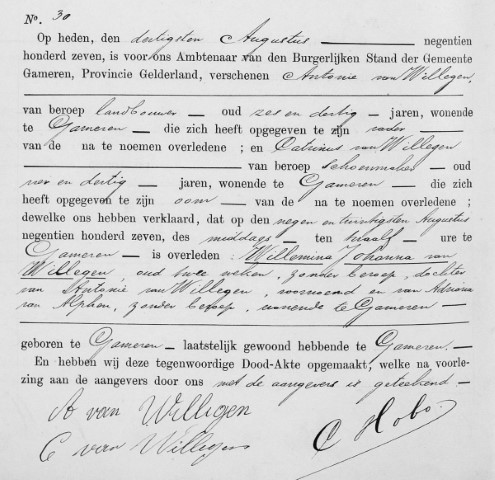 No. 30
Op heden, den dertigsten Augustus negentien
honderd zeven, is voor ons Ambtenaar van den Burgerlijken Stand der Gemeente
Gameren, Provincie Gelderland, verschenen Antonie van Willegen,
van beroep landbouwer — oud zes en dertig — jaren, wonende
te Gameren — die zich heeft opgegeven te zijn vader
van de na te noemen overledene ; en Catrinus van Willegen
van beroep schoenmaker — oud
vier en dertig — jaren, wonende te Gameren — die zich
heeft opgegeven te zijn oom — van de na te noemen overledene ;
dewelke ons hebben verklaard, dat op den negen en twintigsten Augustus
negentien honderd zeven, des middags — ten twaalf — ure te
Gameren — is overleden : Willemina Johanna van
Willegen, oud twee weken, zonder beroep, dochter
van Antonie van Willegen, voornoemd en van Adriana
van Alphen, zonder beroep, wonende te Gameren —
geboren te Gameren — laatstelijk gewoond hebbende te Gameren. —
En hebben wij deze tegenwoordige Dood-Akte opgemaakt, welke na voorle-
zing aan de aangevers door ons met de aangevers is geteekend. —
A van Willigen
C van Willegen
C Hobo.